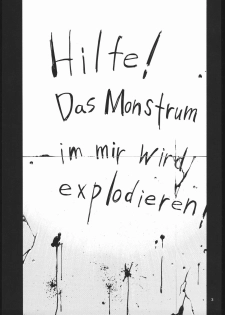 Hilfe!
Das Monstrum
im mir wird
explodieren!